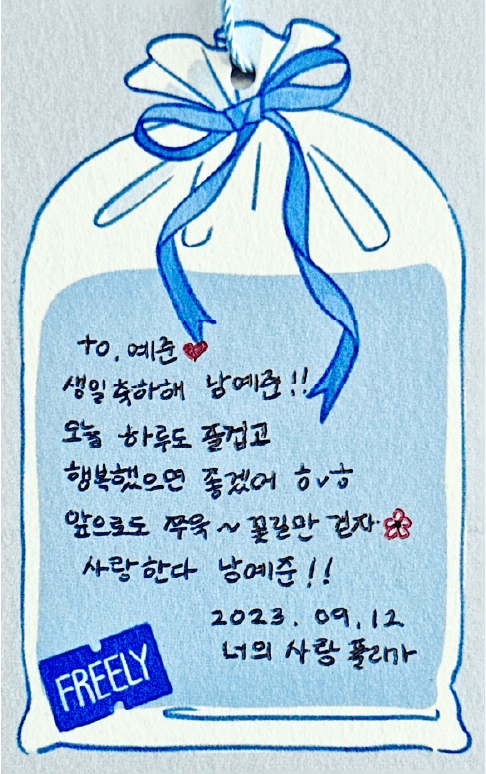 to. 예준♥
생일축하해 남예준!!
오늘 하루도 즐겁고
행복했으면 좋겠어 ㅎvㅎ
앞으로도 쭈욱~꽃길만 걷자
사랑한다 남예준!!
2023. 09. 12
너의 사랑 플리가
FREELY